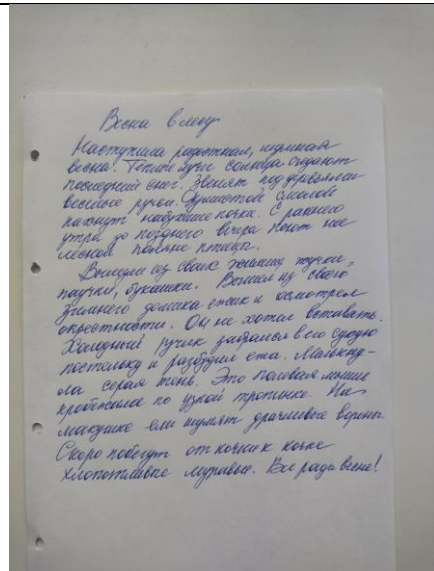 Весна в лесу
Наступила радостная, шумная
весна. Теплые лучи солнца съедают
последний снег. Звенят под деревьями
веселые ручьи. Душистой смолой
пахнут набухшие почки. С раннего
утра до позднего вечера поют на
лесной поляне птицы.
Вылезли из своих жилищ жучки,
паучки, букашки. Вышел из своего
зимнего домика ежик и осмотрел
окрестности. Он не хотел вставать.
Холодный ручеек забрался в его сухую
постельку и разбудил ежа. Мелькну-
ла серая тень. Это полевая мышь
пробежала по узкой тропинке. На
макушке ели шумят драчливые вороны.
Скоро побегут от кочки к кочке
хлопотливые муравьи. Все рады весне!